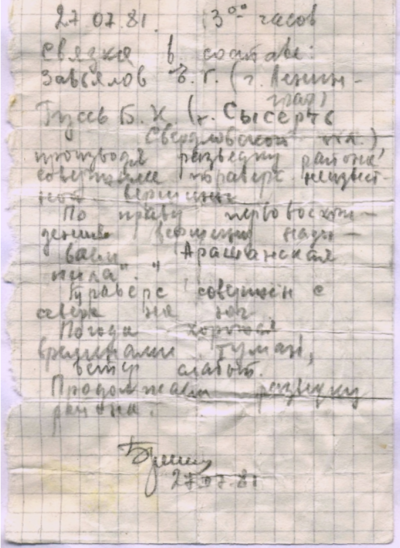 27.07.81. 13⁰⁰ часов
Связка в составе:
Завьялов В. Г. (г. Ленин-
град)
Гусев Б. Х (г. Сысерть
Свердловской обл.)
производя разведку района,
совершили траверс неизвест-
ной вершины
По праву первовосхож-
дения вершину назы-
ваем "Арашанская
пила".
Траверс совершен с
севера на юг
Погода хорошая
временами туман,
ветер слабый.
Продолжаем разведку
района.
27.07.81